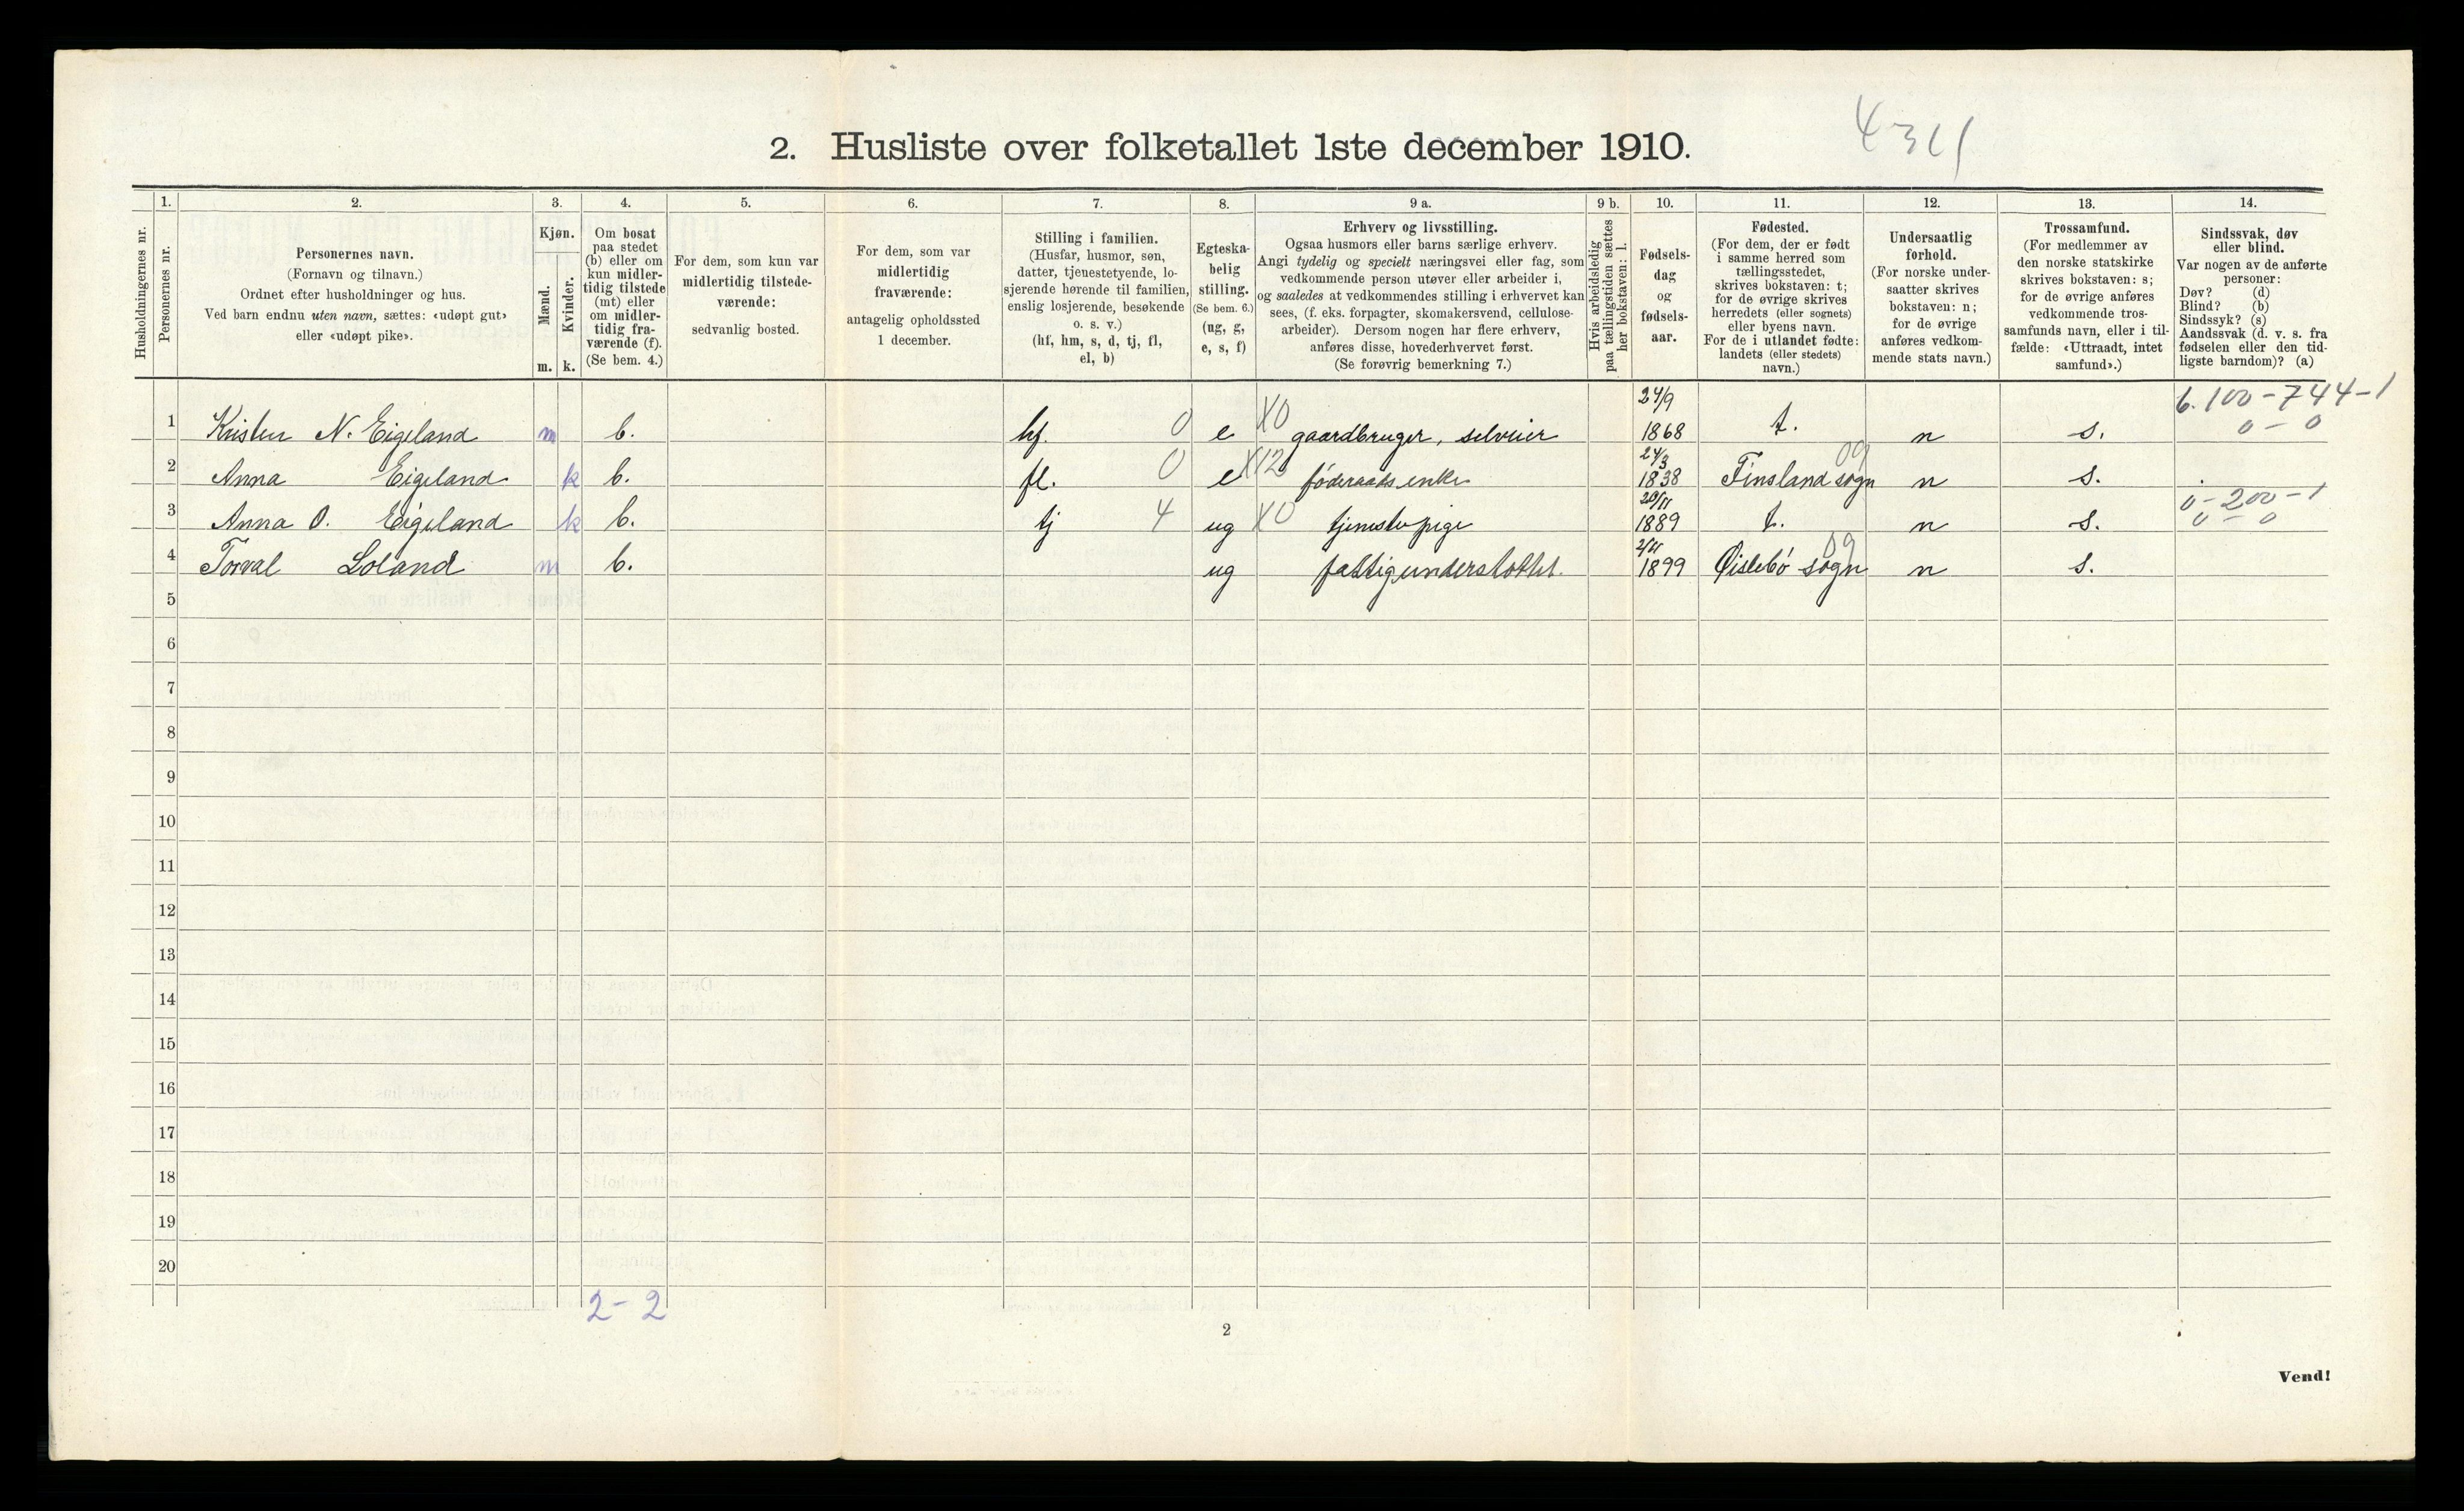 2. Husliste over folketallet 1ste december 1910.
1. 2. 3. 4. 5. 6. 7. 8. 9 a. 9 b. 10. 11. 12. 13. 14.
Husholdningernes nr.
Personernes nr.
Personernes navn.
(Fornavn og tilnavn.)
Ordnet efter husholdninger og hus.
Ved barn endnu uten navn, sættes: «udøpt gut»
eller «udøpt pike».
Kjøn.
Mænd.
Kvinder.
m. k.
Om bosat
paa stedet
(b) eller om
kun midler-
tidig tilstede
(mt) eller
om midler-
tidig fra-
værende (f).
(Se bem. 4.)
For dem, som kun var
midlertidig tilstede-
værende:
sedvanlig bosted.
For dem, som var
midlertidig
fraværende:
antagelig opholdssted
1 december.
Stilling i familien.
(Husfar, husmor, søn,
datter, tjenestetyende, lo-
sjerende hørende til familien,
enslig losjerende, besøkende
o. s. v.)
(hf, hm, s, d, tj, fl,
el, b)
Egteska-
belig
stilling.
(Se bem. 6.)
(ug, g,
e, s, f)
Erhverv og livsstilling.
Ogsaa husmors eller barns særlige erhverv.
Angi tydelig og specielt næringsvei eller fag, som
vedkommende person utøver eller arbeider i,
og saaledes at vedkommendes stilling i erhvervet kan
sees, (f. eks. forpagter, skomakersvend, cellulose-
arbeider). Dersom nogen har flere erhverv,
anføres disse, hovederhvervet først.
(Se forøvrig bemerkning 7.)
Hvis arbeidsledig
paa tællingstiden sættes
her bokstaven: l.
Fødsels-
dag
og
fødsels-
aar.
Fødested.
(For dem, der er født
i samme herred som
tællingsstedet,
skrives bokstaven: t;
for de øvrige skrives
herredets (eller sognets)
eller byens navn.
For de i utlandet fødte:
landets (eller stedets)
navn.)
Undersaatlig
forhold.
(For norske under-
saatter skrives
bokstaven: n;
for de øvrige
anføres vedkom-
mende stats navn.)
Trossamfund.
(For medlemmer av
den norske statskirke
skrives bokstaven: s;
for de øvrige anføres
vedkommende tros-
samfunds navn, eller i til-
fælde: «Uttraadt, intet
samfund».)
Sindssvak, døv
eller blind.
Var nogen av de anførte
personer:
Døv? (d)
Blind? (b)
Sindssyk? (s)
Aandssvak (d. v. s. fra
fødselen eller den tid-
ligste barndom)? (a)
6.100-744-1
0-0
1 Kristen N. Eigeland m b. hf. 0 e X0 gaardbruger, selveier 24/9 1868 t. n s.
2 Anna Eigeland k b. fl. 0 e X12 føderaadsenke 24/3 1838 Finsland sogn 09 n s.
0-200-1
0-0
3 Anna O. Eigeland k b. tj 4 ug X0 tjenestepige 20/11 1889 t. n s.
4 Torval Loland m b. ug fattigunderstøttet. 1899 Øislebø sogn 09 n s.
5
6
7
8
9
10
11
12
13
14
15
16
17
18
19
20
2-2
2
Vend!